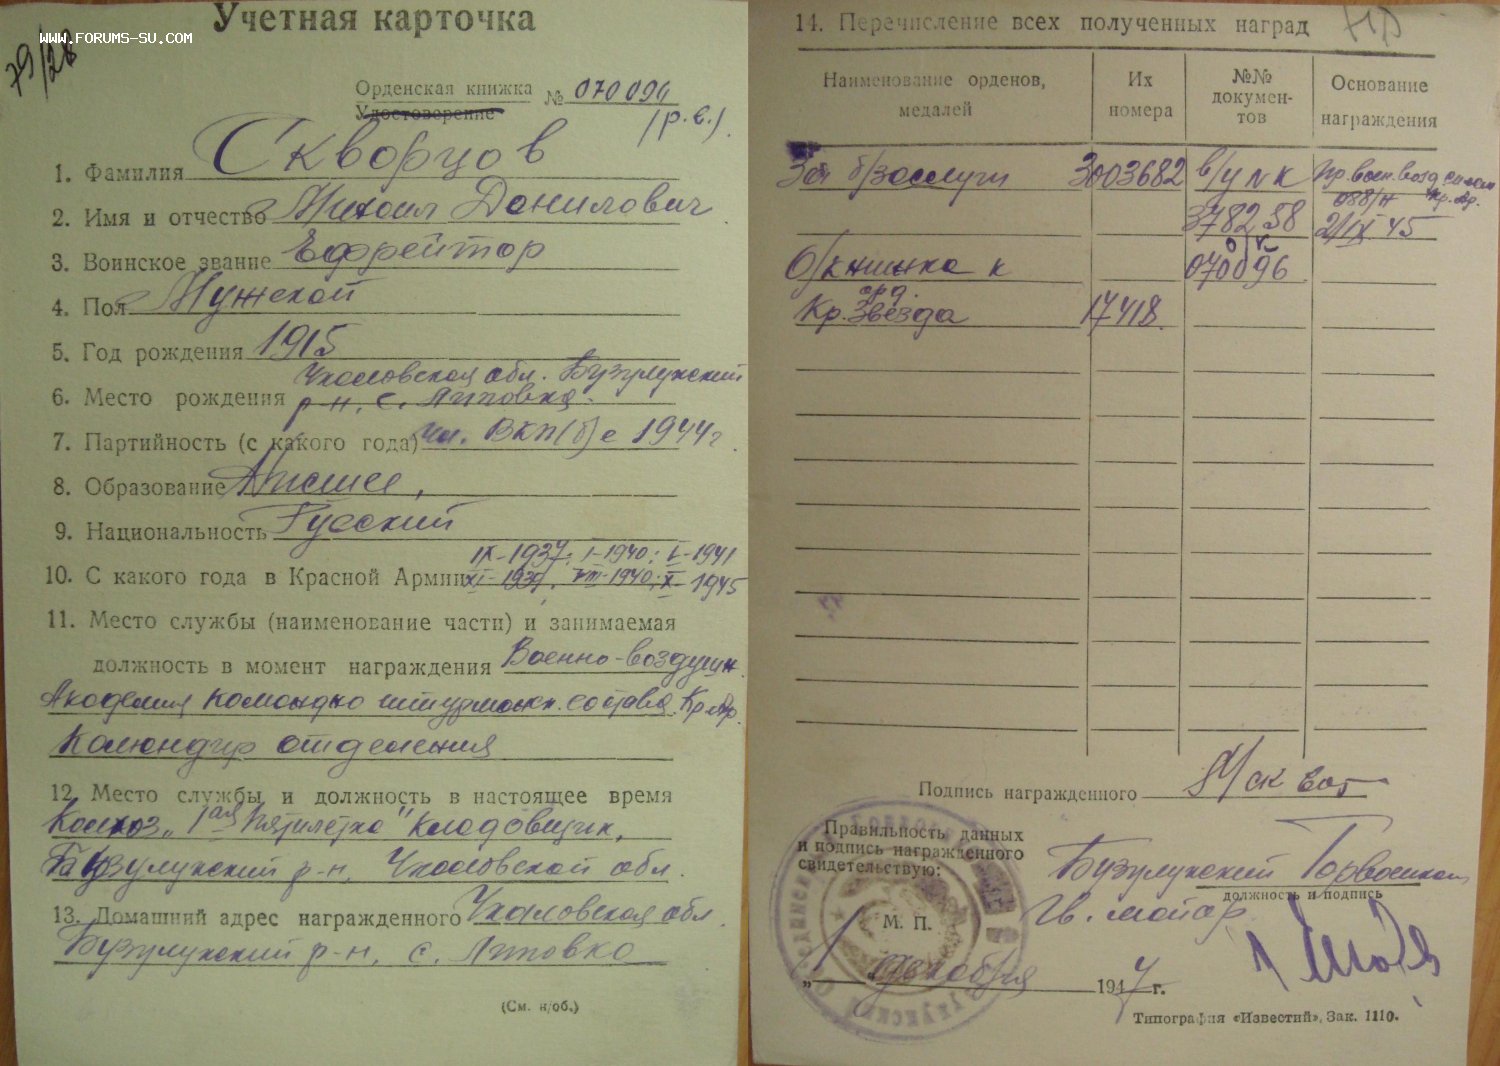 Учетная карточка
WWW.FORUMS-SU.COM
79/28
Орденская книжка № 070096
Удостоверение
(р.в.).
1. Фамилия Скворцов
2. Имя и отчество Михаил Данилович
3. Воинское звание Ефрейтор
4. Пол Мужской
5. Год рождения 1915
Чкаловская обл. Бузулукский
6. Место рождения р-н, с. Липовка.
7. Партийность (с какого года) чл. ВКП(б) с 1944 г
8. Образование Низшее,
9. Национальность Русский
IX-1937; I-1940; V-1941
10. С какого года в Красной Армии XI-1939, VIII-1940; X-1945
11. Место службы (наименование части) и занимаемая
должность в момент награждения Военно-воздушн.
Академия командно штурманск. состава Кр. Ар.
Командир отделения
12. Место службы и должность в настоящее время
Колхоз „1ая Пятилетка" кладовщик,
Бузулукский р-н, Чкаловской обл.
13. Домашний адрес награжденного Чкаловская обл.
Бузулукский р-н, с. Липовка
(См. н/об.)
14. Перечисление всех полученных наград
Наименование орденов, медалей
Их номера
№№ документов
Основание награждения
За б/заслуги 3003682 в/у № К
378258
088/н
2/IX 45
о/к
О/книжка к 070096
орд.
Кр. Звезда 17418
Подпись награжденного
Правильность данных
и подпись награжденного
свидетельствую:
Бузулукский Горвоенком
должность и подпись
М. П.
Гв. майор
„1" декабря 1947 г.
Типография «Известий», Зак. 1110.